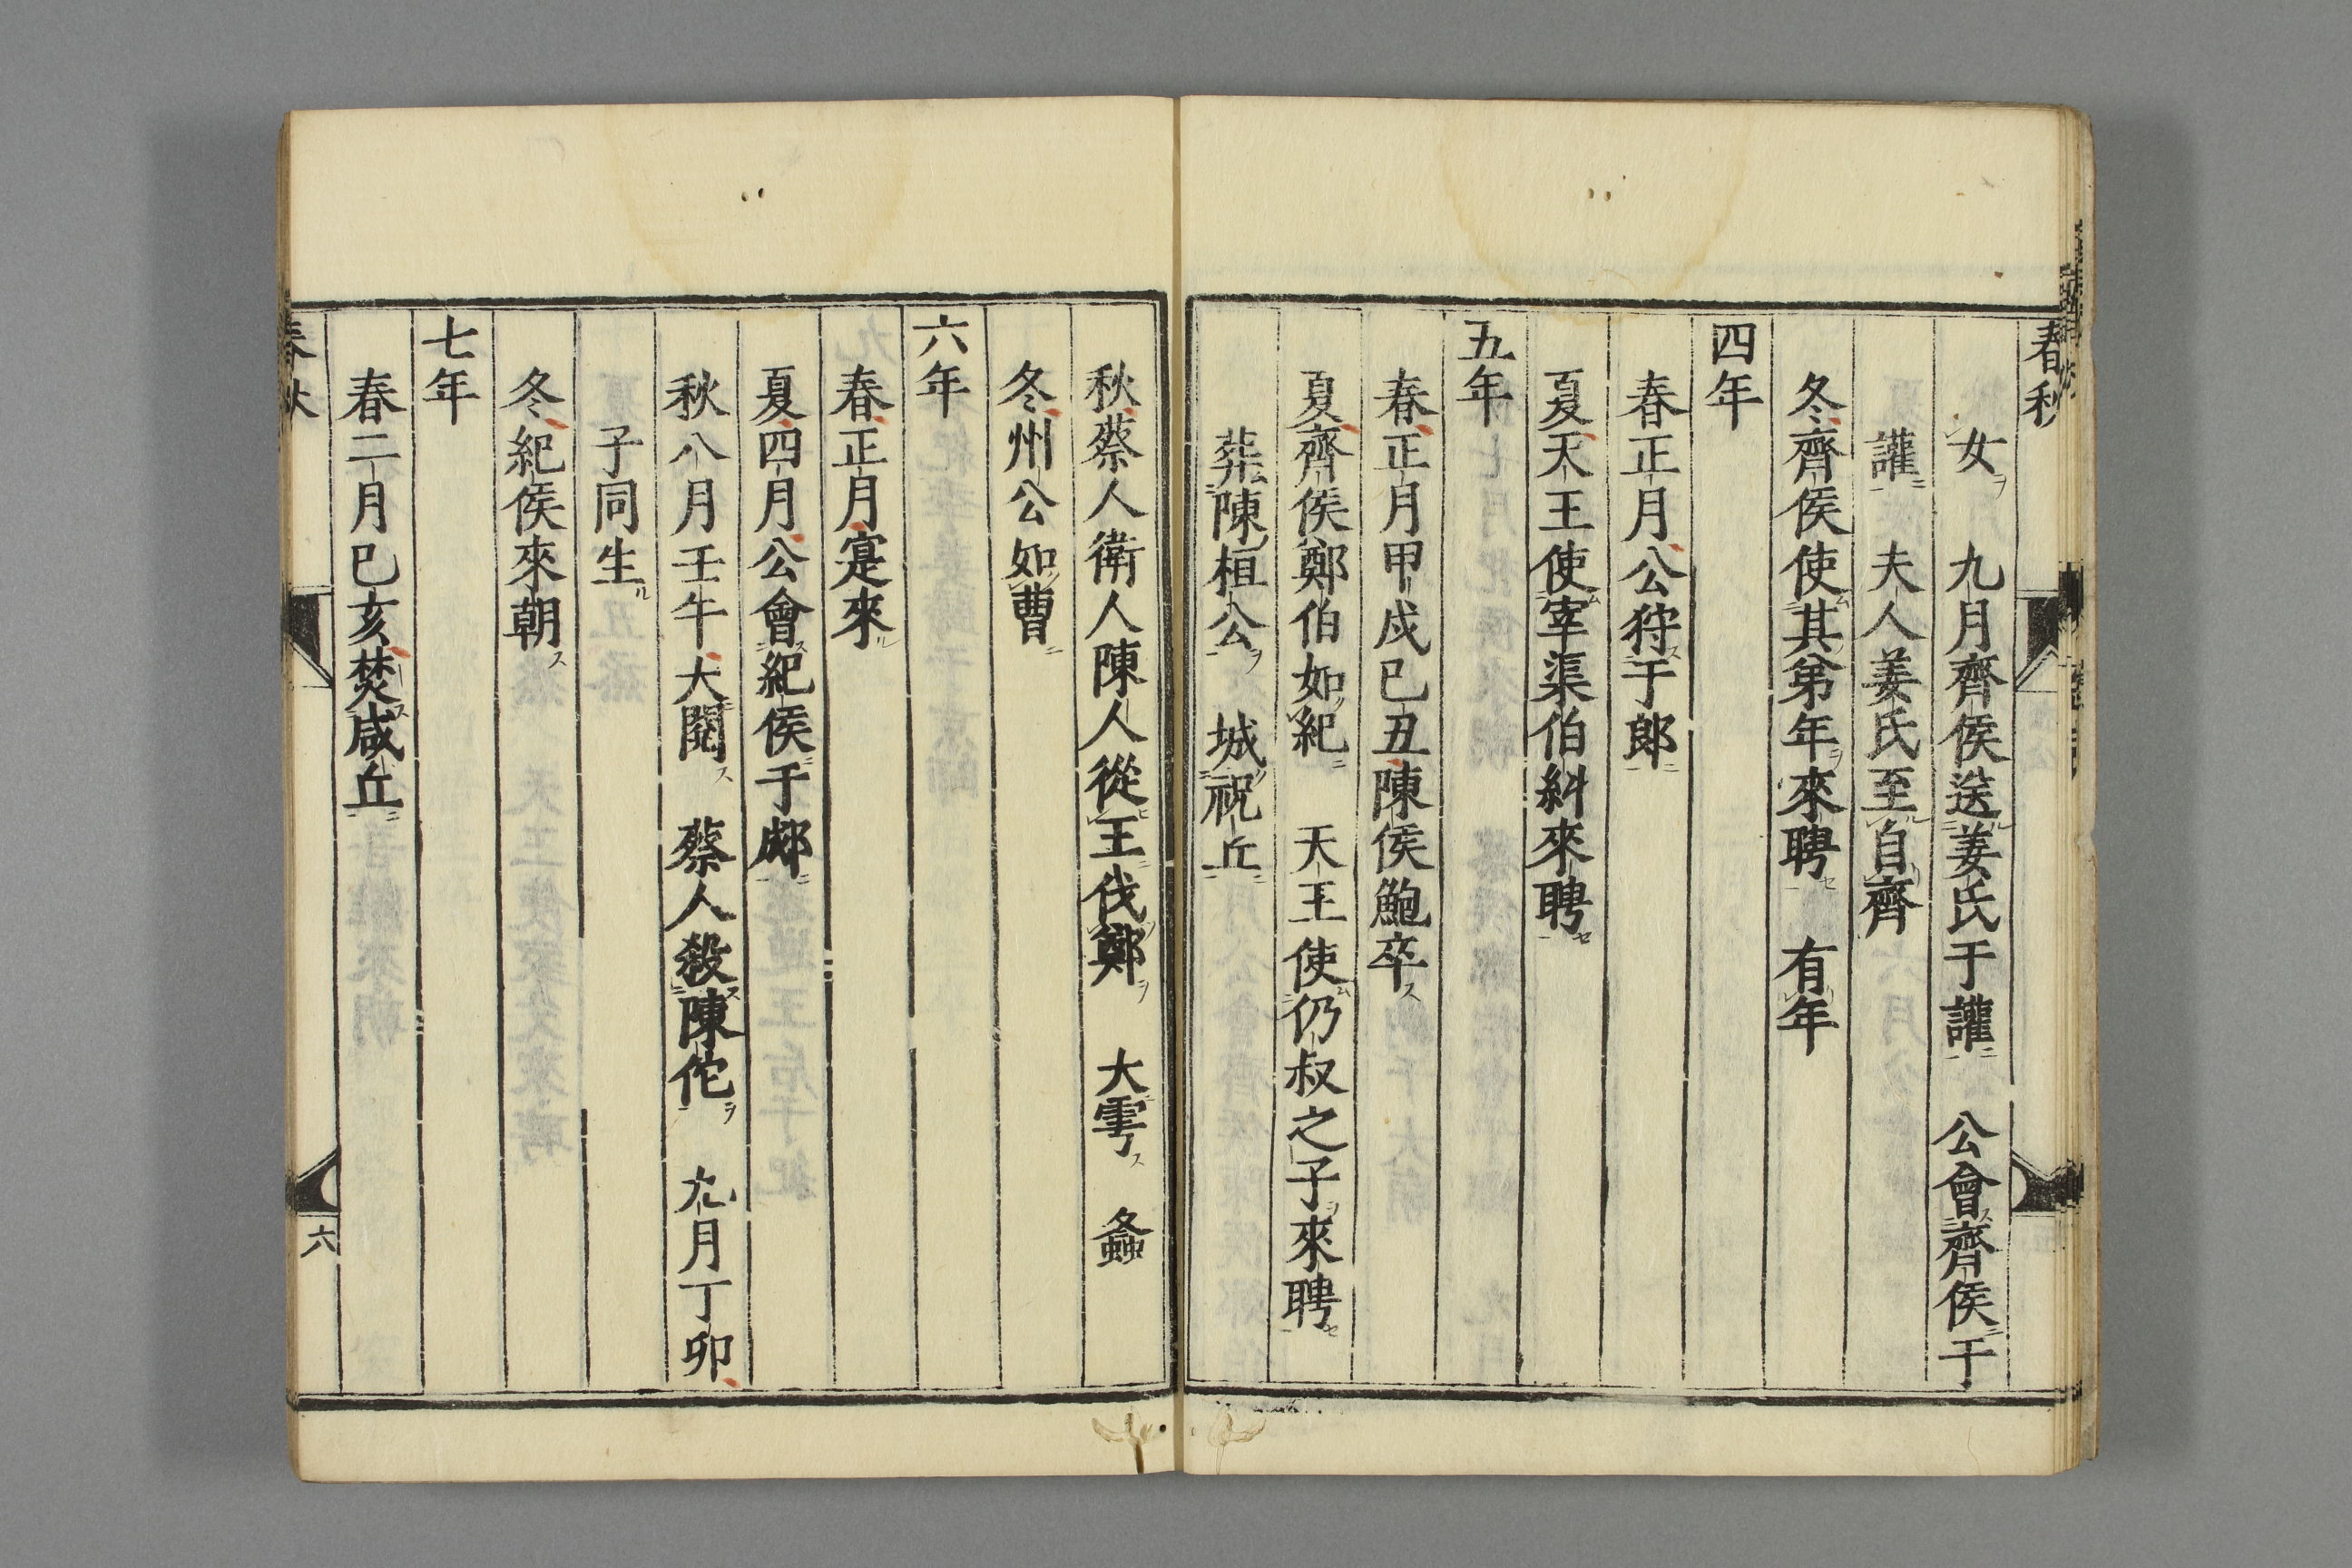 春秋
女　九月齊侯送姜氏于讙　公會齊侯于
讙　夫人姜氏至自齊
冬齊侯使其弟年來聘　有年
四年
春正月公狩于郎
夏天王使宰渠伯糾來聘
五年
春正月甲戌己丑陳侯鮑卒
夏齊侯鄭伯如紀　天王使仍叔之子來聘
葬陳桓公　城祝丘
秋蔡人衛人陳人從王伐鄭　大雩　螽
冬州公如曹
六年
春正月寔來
夏四月公會紀侯于郕
秋八月壬午大閱　蔡人殺陳佗　九月丁卯
子同生
冬紀侯來朝
七年
春二月已亥焚咸丘
春秋
六